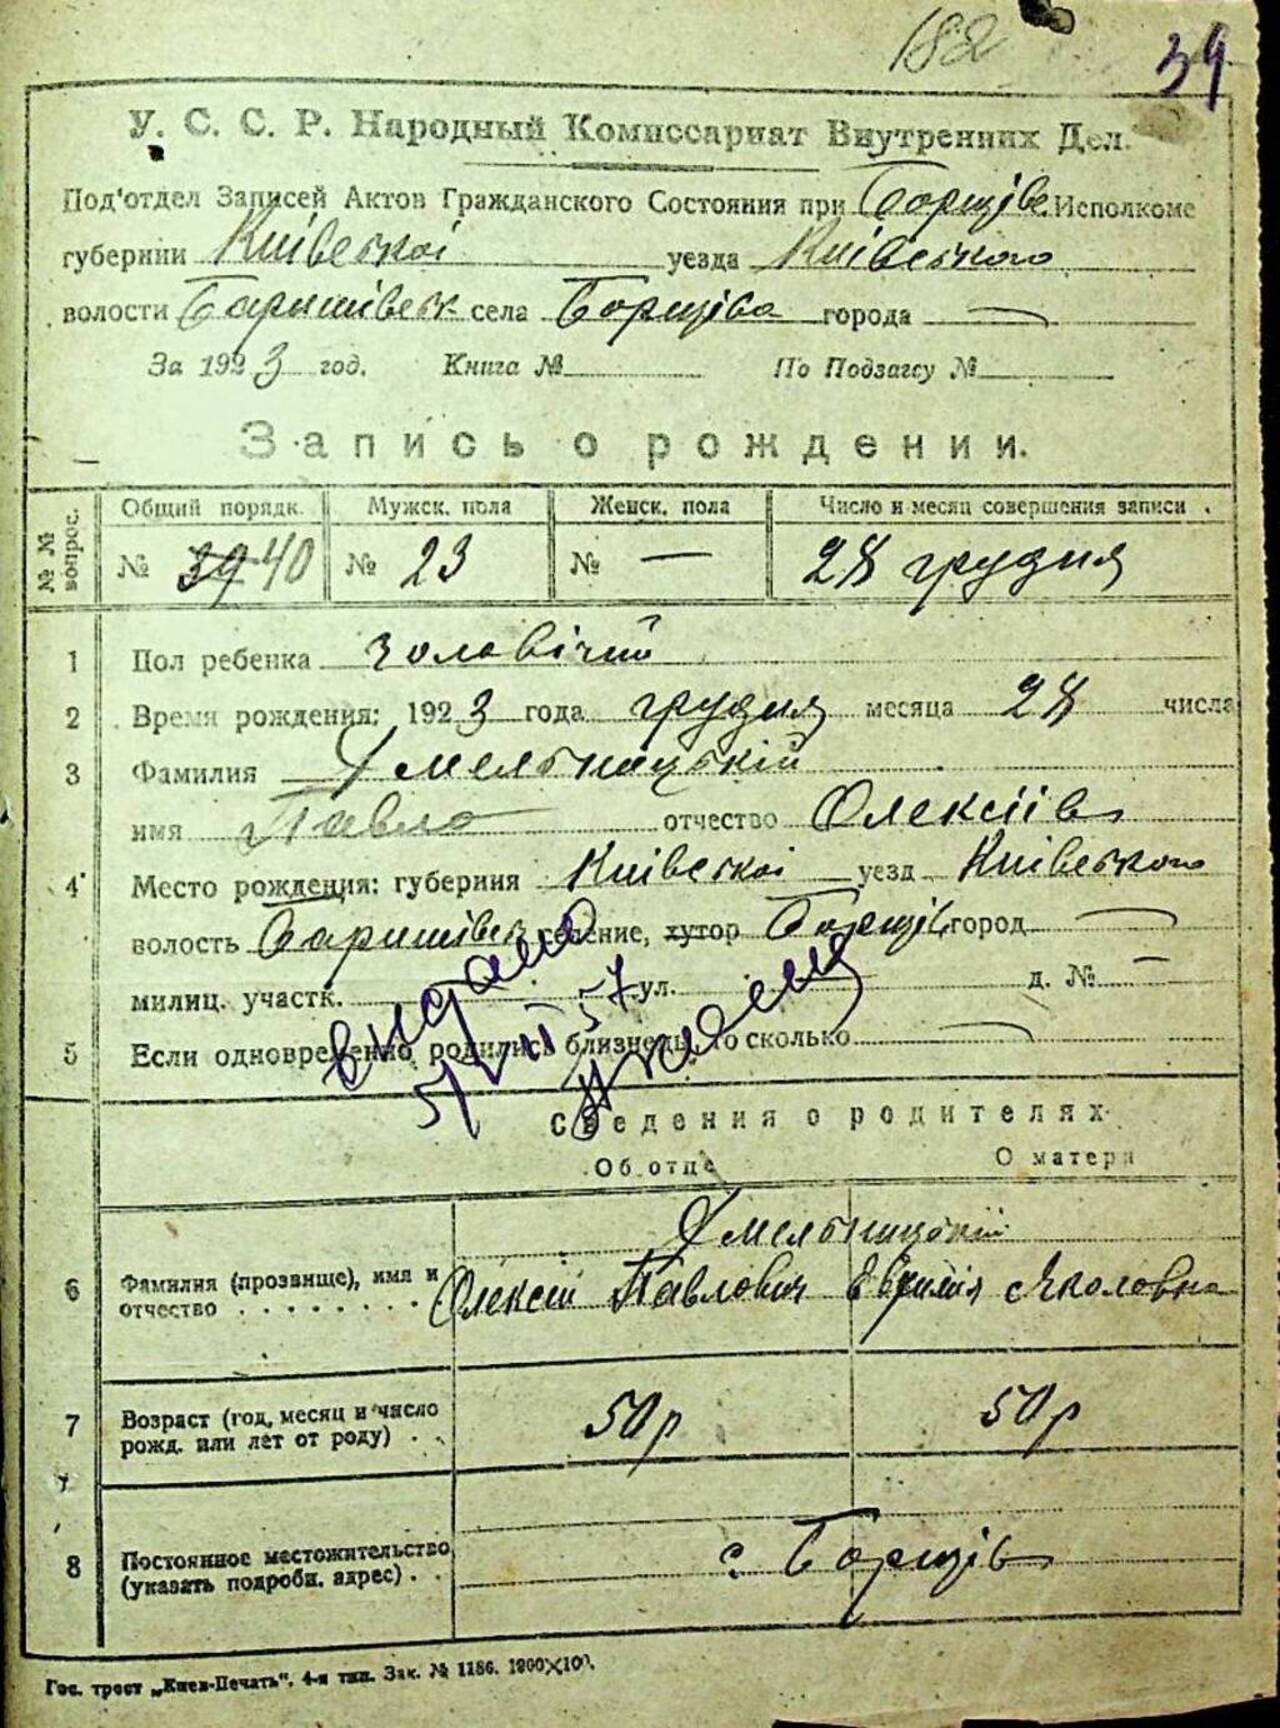 182
39
У. С. С. Р. Народный Комиссариат Внутренних Дел.
Под'отдел Записей Актов Гражданского Состояния при Борщівс. Исполкоме
губернии Київської уезда Київського
волости Баришівськ села Борщіва города —
За 1923 год. Книга № По Подзагсу №
Запись о рождении.
№ № вопрос.
Общий порядк. Мужск. пола Женск. пола Число и месяц совершения записи
№ 39 40 № 23 № — 28 грудня
1 Пол ребенка чоловічий
2 Время рождения: 1923 года грудня месяца 28 числа
3 Фамилия Хмельницький
имя Павло отчество Олексіів
4 Место рождения: губерния Київської уезд Київського
волость Баришівськ селение, хутор Борщів город —
милиц. участк. ул. д. № —
5 Если одновременно родились близнецы, то сколько —
видано
5/VII 57
Сведения о родителях
Об отце О матери
Хмельницькій
6 Фамилия (прозвище), имя и отчество Олексій Павлович Євфимія Яколовна
7 Возраст (год, месяц и число рожд. или лет от роду) 50 р 50 р
8 Постоянное местожительство (указать подробн. адрес) с. Борщів
Гос. трест „Киев-Печать“. 4-я тип. Зак. № 1186. 1900×100.